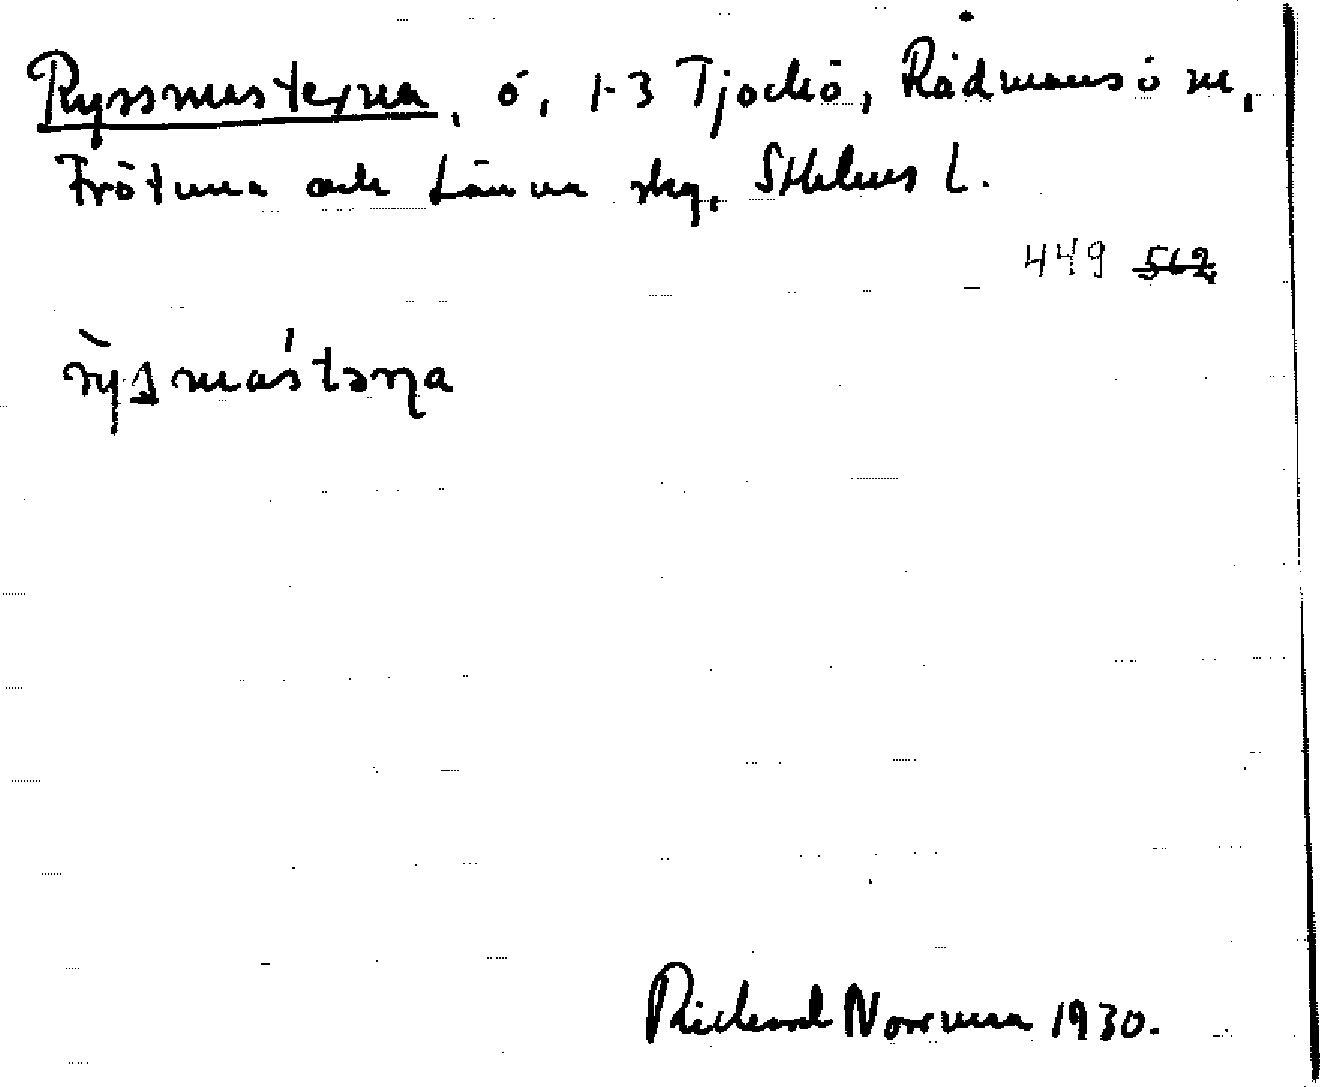 Ryssmasterna, ö, 1-3 Tjockö, Rådmansö sn,
Frötuna och Länna skg, Sthlms L.
449 562
rỳsmástəṇa
Richard Norrman 1930.